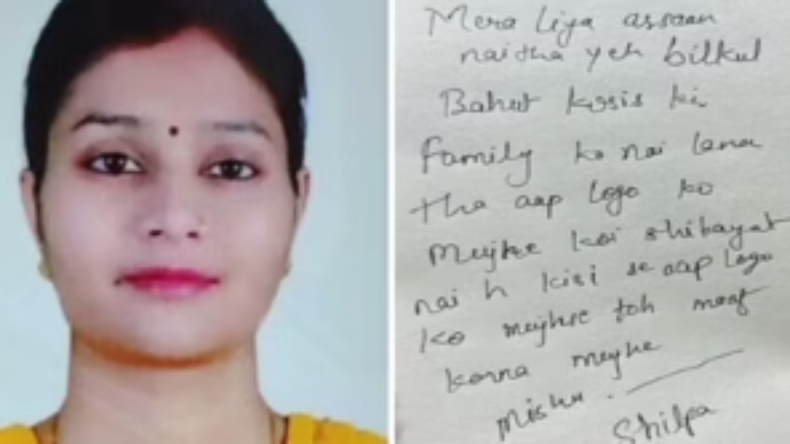 Mera liya assaan
nai tha yeh bilkul
Bahut kosis ki
family ko nai lana
tha aap logo ko
Mujhe koi shikayat
nai h kisi se aap logo
ko mujhse toh maaf
karna mujhe
Mishu.
Shilpa